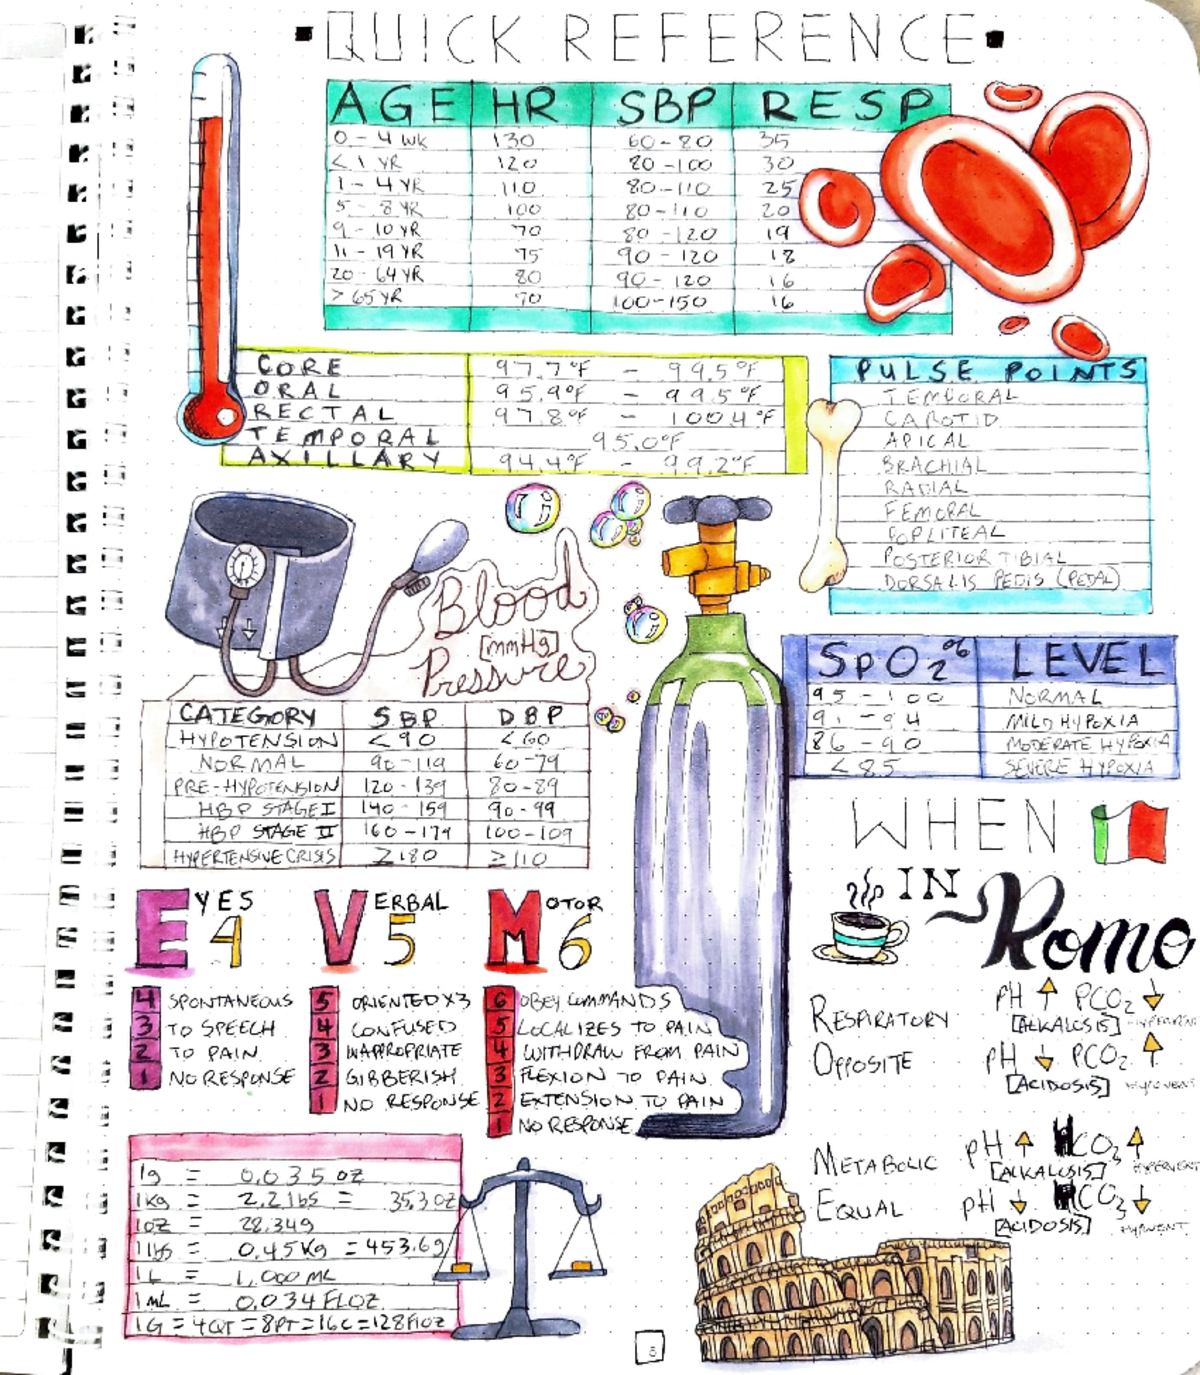 QUICK REFERENCE
AGE HR SBP RESP
0 - 4 WK 130 60-80 35
<1 YR 120 80-100 30
1 - 4 YR 110 80-110 25
5 - 8 YR 100 80-110 20
9 - 10 YR 70 80-120 19
11 - 19 YR 75 90-120 18
20 - 64 YR 80 90-120 16
>65 YR 70 100-150 16
CORE 97.7°F - 99.5°F
ORAL 95.9°F - 99.5°F
RECTAL 97.8°F - 100.4°F
TEMPORAL 95.0°F
AXILLARY 94.4°F - 99.2°F
PULSE POINTS
TEMPORAL
CAROTID
APICAL
BRACHIAL
RADIAL
FEMORAL
POPLITEAL
POSTERIOR TIBIAL
DORSALIS PEDIS (PEDAL)
Blood
[mmHg]
Pressure
CATEGORY SBP DBP
HYPOTENSION <90 <60
NORMAL 90-119 60-79
PRE-HYPOTENSION 120-139 80-89
HBP STAGE I 140-159 90-99
HBP STAGE II 160-179 100-109
HYPERTENSIVE CRISIS ≥180 ≥110
SpO2% LEVEL
95 - 100 NORMAL
91 - 94 MILD HYPOXIA
86 - 90 MODERATE HYPOXIA
<85 SEVERE HYPOXIA
EYES 4
4 SPONTANEOUS
3 TO SPEECH
2 TO PAIN
1 NO RESPONSE
VERBAL 5
5 ORIENTED X3
4 CONFUSED
3 INAPPROPRIATE
2 GIBBERISH
1 NO RESPONSE
MOTOR 6
6 OBEY COMMANDS
5 LOCALIZES TO PAIN
4 WITHDRAW FROM PAIN
3 FLEXION TO PAIN
2 EXTENSION TO PAIN
1 NO RESPONSE
WHEN
IN
Rome
RESPIRATORY pH ↑ PCO2 ↓
[ALKALOSIS] HYPERVENT
OPPOSITE pH ↓ PCO2 ↑
[ACIDOSIS] HYPOVENT
METABOLIC pH ↑ HCO3 ↑
[ALKALOSIS] HYPERVENT
EQUAL pH ↓ HCO3 ↓
[ACIDOSIS] HYPOVENT
1g = 0.035 oz
1Kg = 2.2 lbs = 35.3 oz
1oz = 28.34g
1 lbs = 0.45 Kg = 453.6g
1L = 1,000 mL
1mL = 0.034 FLOZ
1G = 4QT = 8PT = 16C = 128FlOZ
8